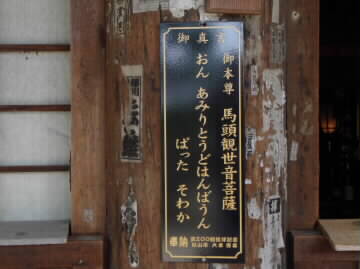 御真言
御本尊 馬頭観世音菩薩
おん あみりとうどはんばうん
ぱった そわか
奉納